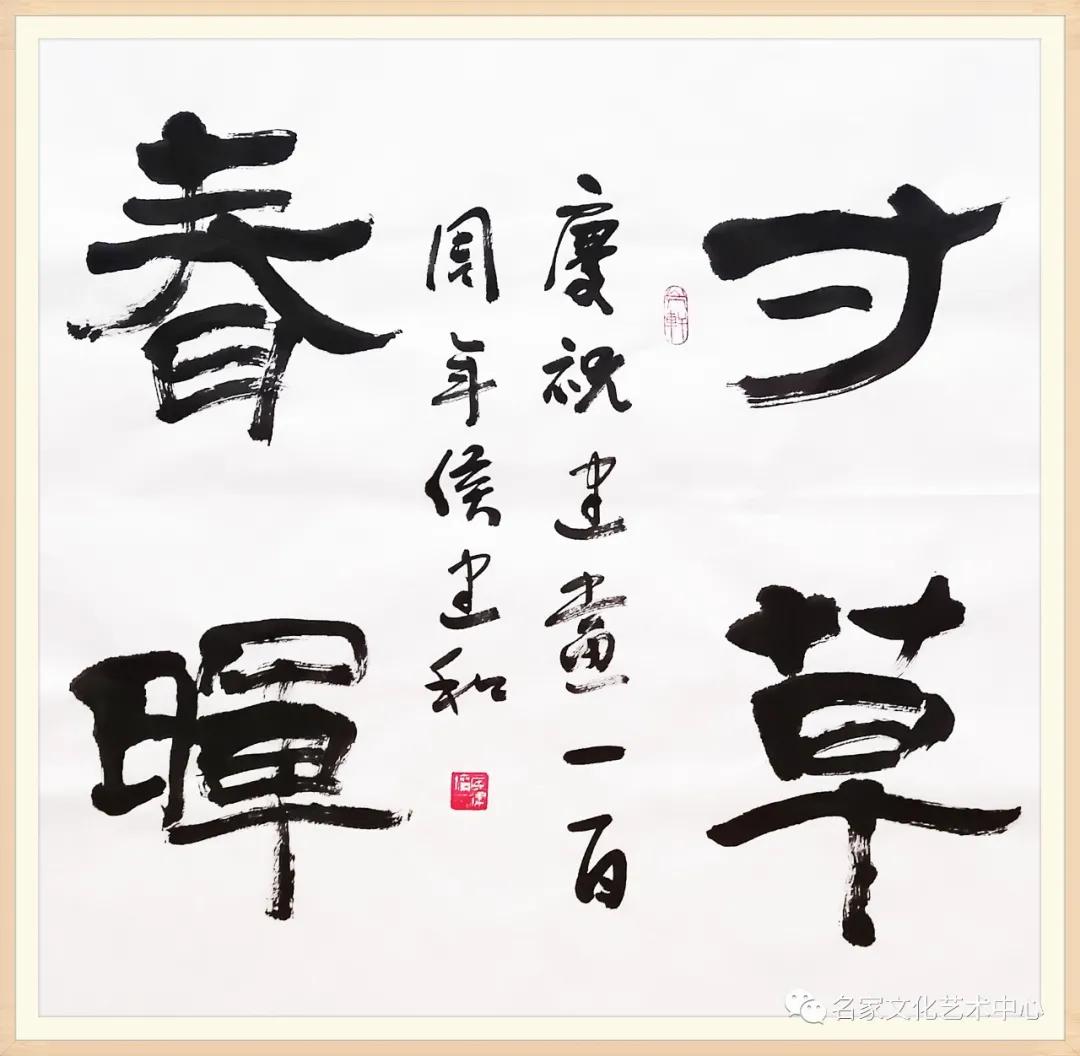 寸草
慶祝建黨一百
周年侯建和
春暉
名家文化艺术中心